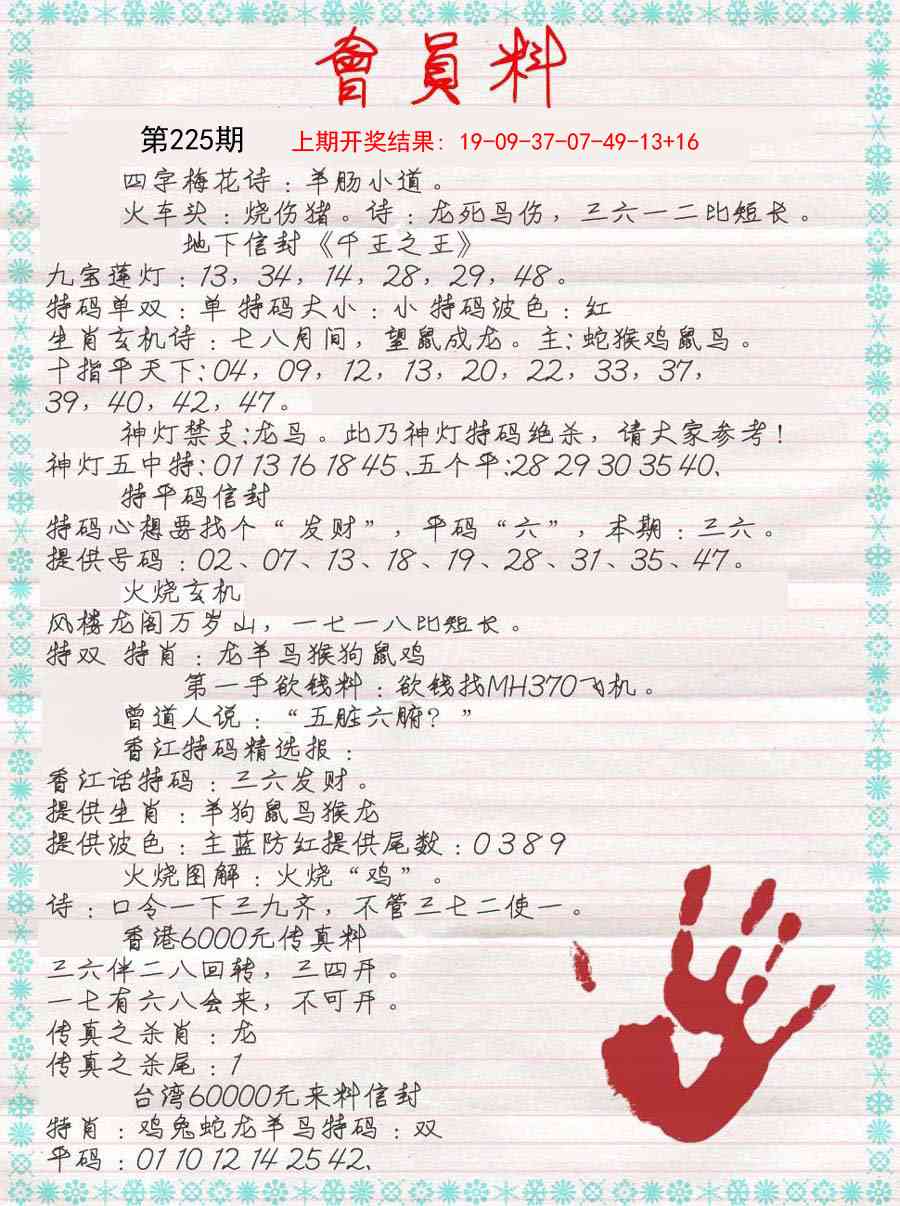 會員料
第225期 上期开奖结果：19-09-37-07-49-13+16
四字梅花诗：羊肠小道。
火车头：烧伤猪。诗：龙死鸟伤，三六一二比短长。
地下信封《千王之王》
九宝莲灯：13，34，14，28，29，48。
特码单双：单 特码大小：小 特码波色：红
生肖玄机诗：七八月间，望鼠成龙。主：蛇猴鸡鼠鸟。
十指平天下：04，09，12，13，20，22，33，37，
39，40，42，47。
神灯禁支：龙鸟。此乃神灯特码绝杀，请大家参考！
神灯五中特：01 13 16 18 45、五个平：28 29 30 35 40、
特平码信封
特码心想要找个“发财”，平码“六”，本期：三六。
提供号码：02、07、13、18、19、28、31、35、47。
火烧玄机
风楼龙阁万岁山，一七一八比短长。
特双 特肖：龙羊鸟猴狗鼠鸡
第一手欲钱料：欲钱找MH370飞机。
曾道人说：“五脏六腑？”
香江特码精选报：
香江话特码：三六发财。
提供生肖：羊狗鼠鸟猴龙
提供波色：主蓝防红提供尾数：0 3 8 9
火烧图解：火烧“鸡”。
诗：口令一下三九齐，不管三七二使一。
香港6000元传真料
三六伴二八回转，三四开。
一七有六八会来，不可开。
传真之杀肖：龙
传真之杀尾：1
台湾60000元来料信封
特肖：鸡兔蛇龙羊鸟特码：双
平码：01 10 12 14 25 42、